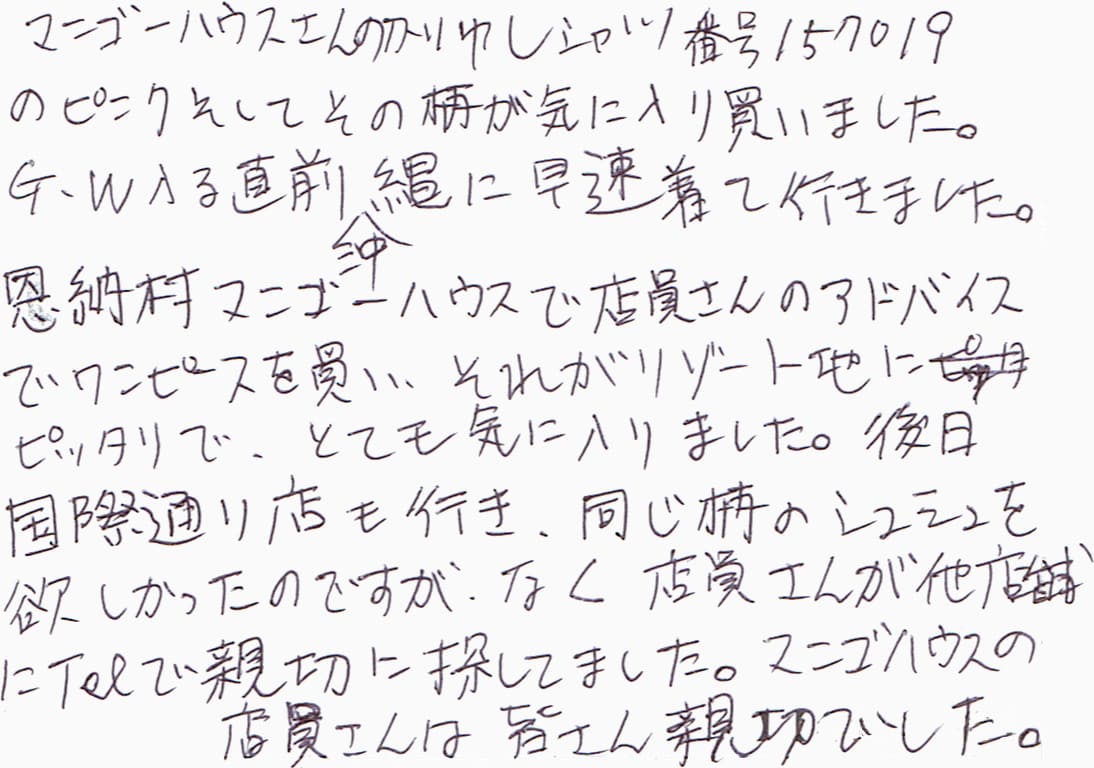 マンゴーハウスさんのかりゆしシャツ 番号157019
のピンクそしてその柄が気に入り買いました。
G.W入る直前沖縄に早速着て行きました。
恩納村マンゴーハウスで店員さんのアドバイス
でワンピースを買い、それがリゾート地に
ピッタリで、とても気に入りました。後日
国際通り店も行き、同じ柄のシュシュを
欲しかったのですが、なく店員さんが他店舗
にTelで親切に探してました。マンゴハウスの
店員さんは皆さん親切でした。